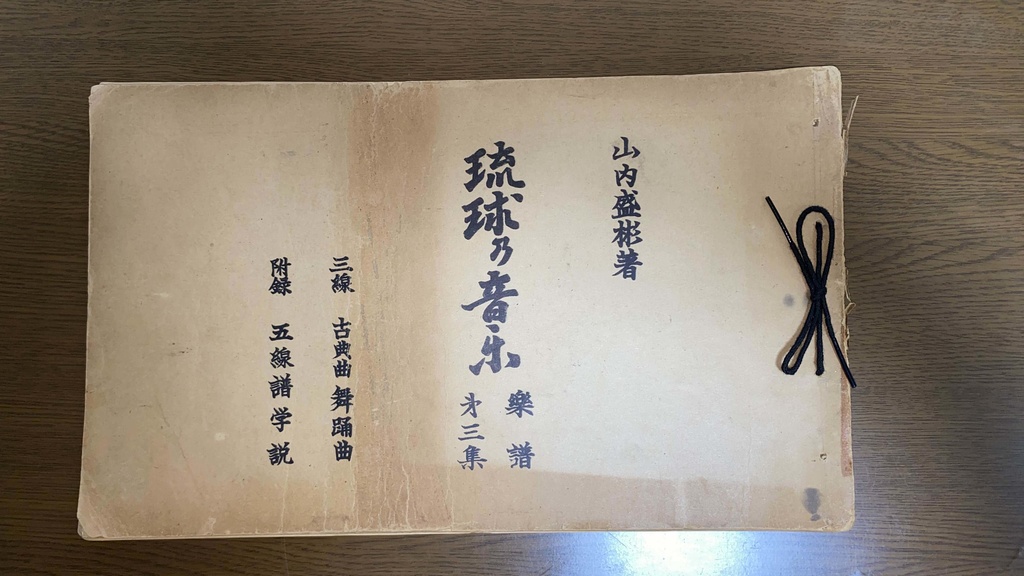 山内盛彬著
琉球乃音乐
樂譜
第三集
三線 古典曲 舞踊曲
附録 五線譜学説